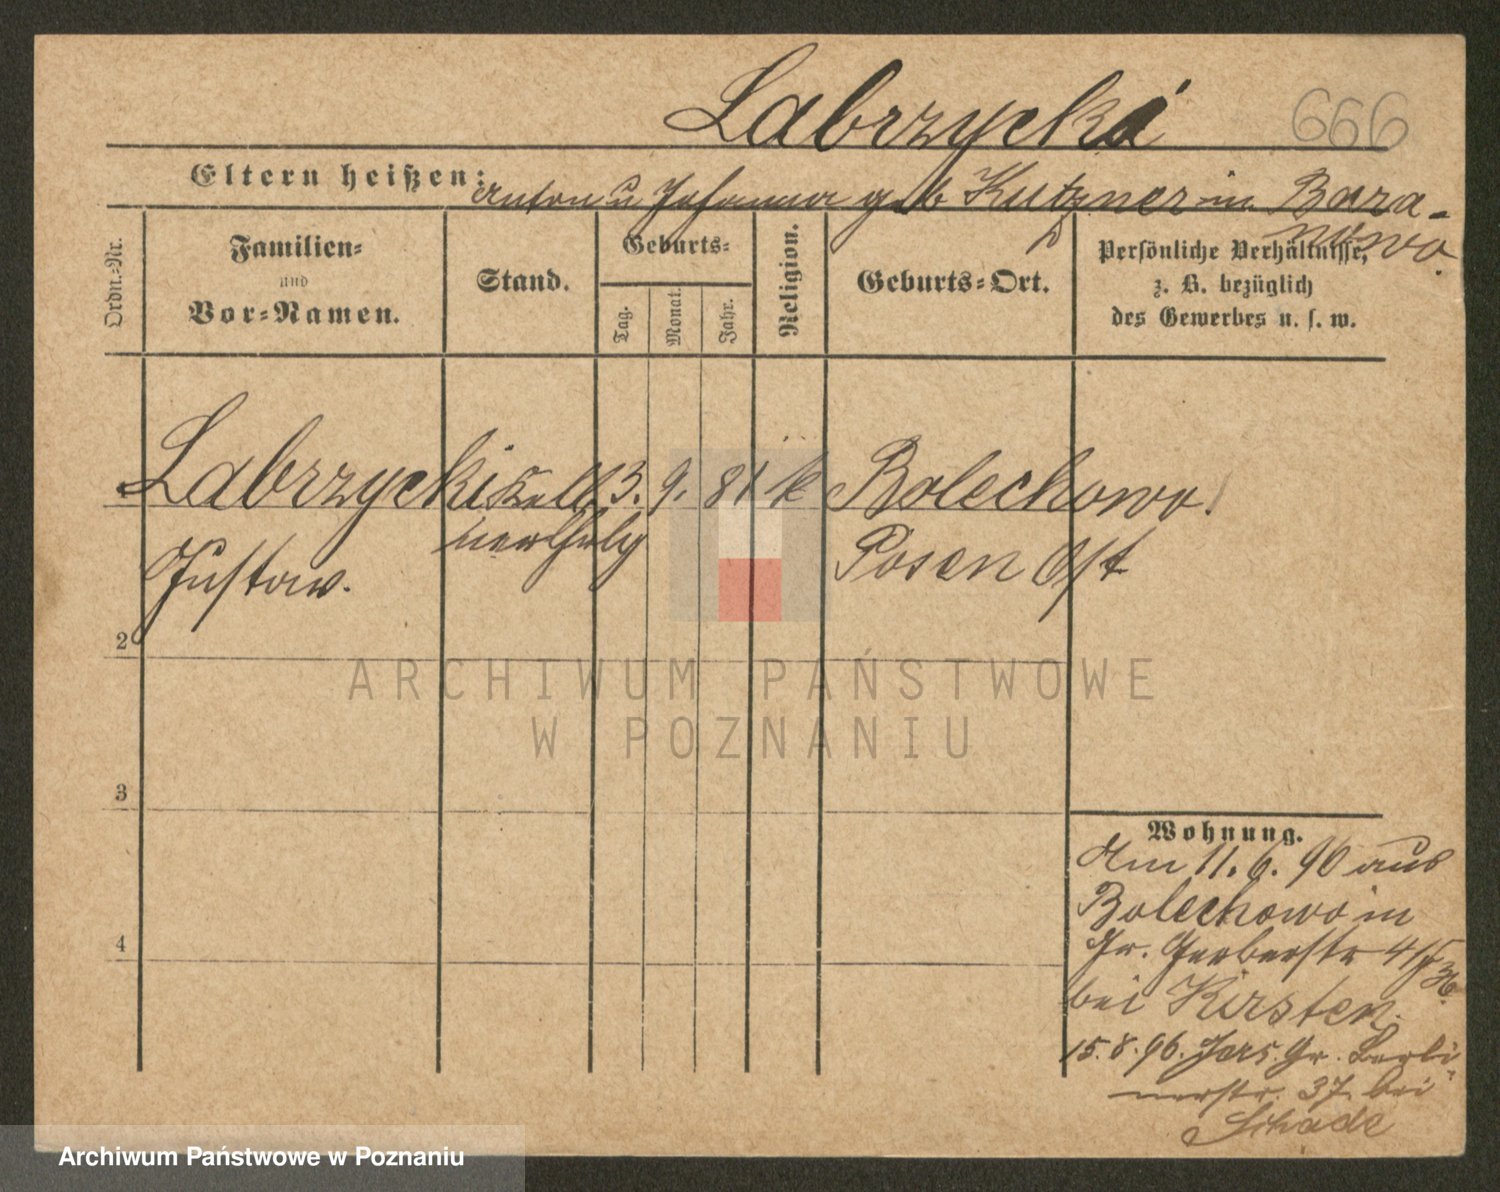 Labrzycki
666
Eltern heißen: Anton u Johanna geb Kutzner in Bara-
nowo.
Ordn.-Nr.
Familien-
und
Vor-Namen.
Stand.
Geburts-
Tag.
Monat.
Jahr.
Religion.
Geburts-Ort.
Persönliche Verhältnisse,
z. B. bezüglich
des Gewerbes u. s. w.
Labrzycki Kell 13. 9. 81 k Bolechowo
Gustaw. nerlhrlg Posen Ost
2
3
4
Wohnung.
Am 11. 6. 96 aus
Bolechowo in
Gr. Gerberstr 41
bei Kirsten.
15. 8. 96. Jers. Gr. Berli
nerstr. 37 bei
Schade
ARCHIWUM PAŃSTWOWE
W POZNANIU
Archiwum Państwowe w Poznaniu